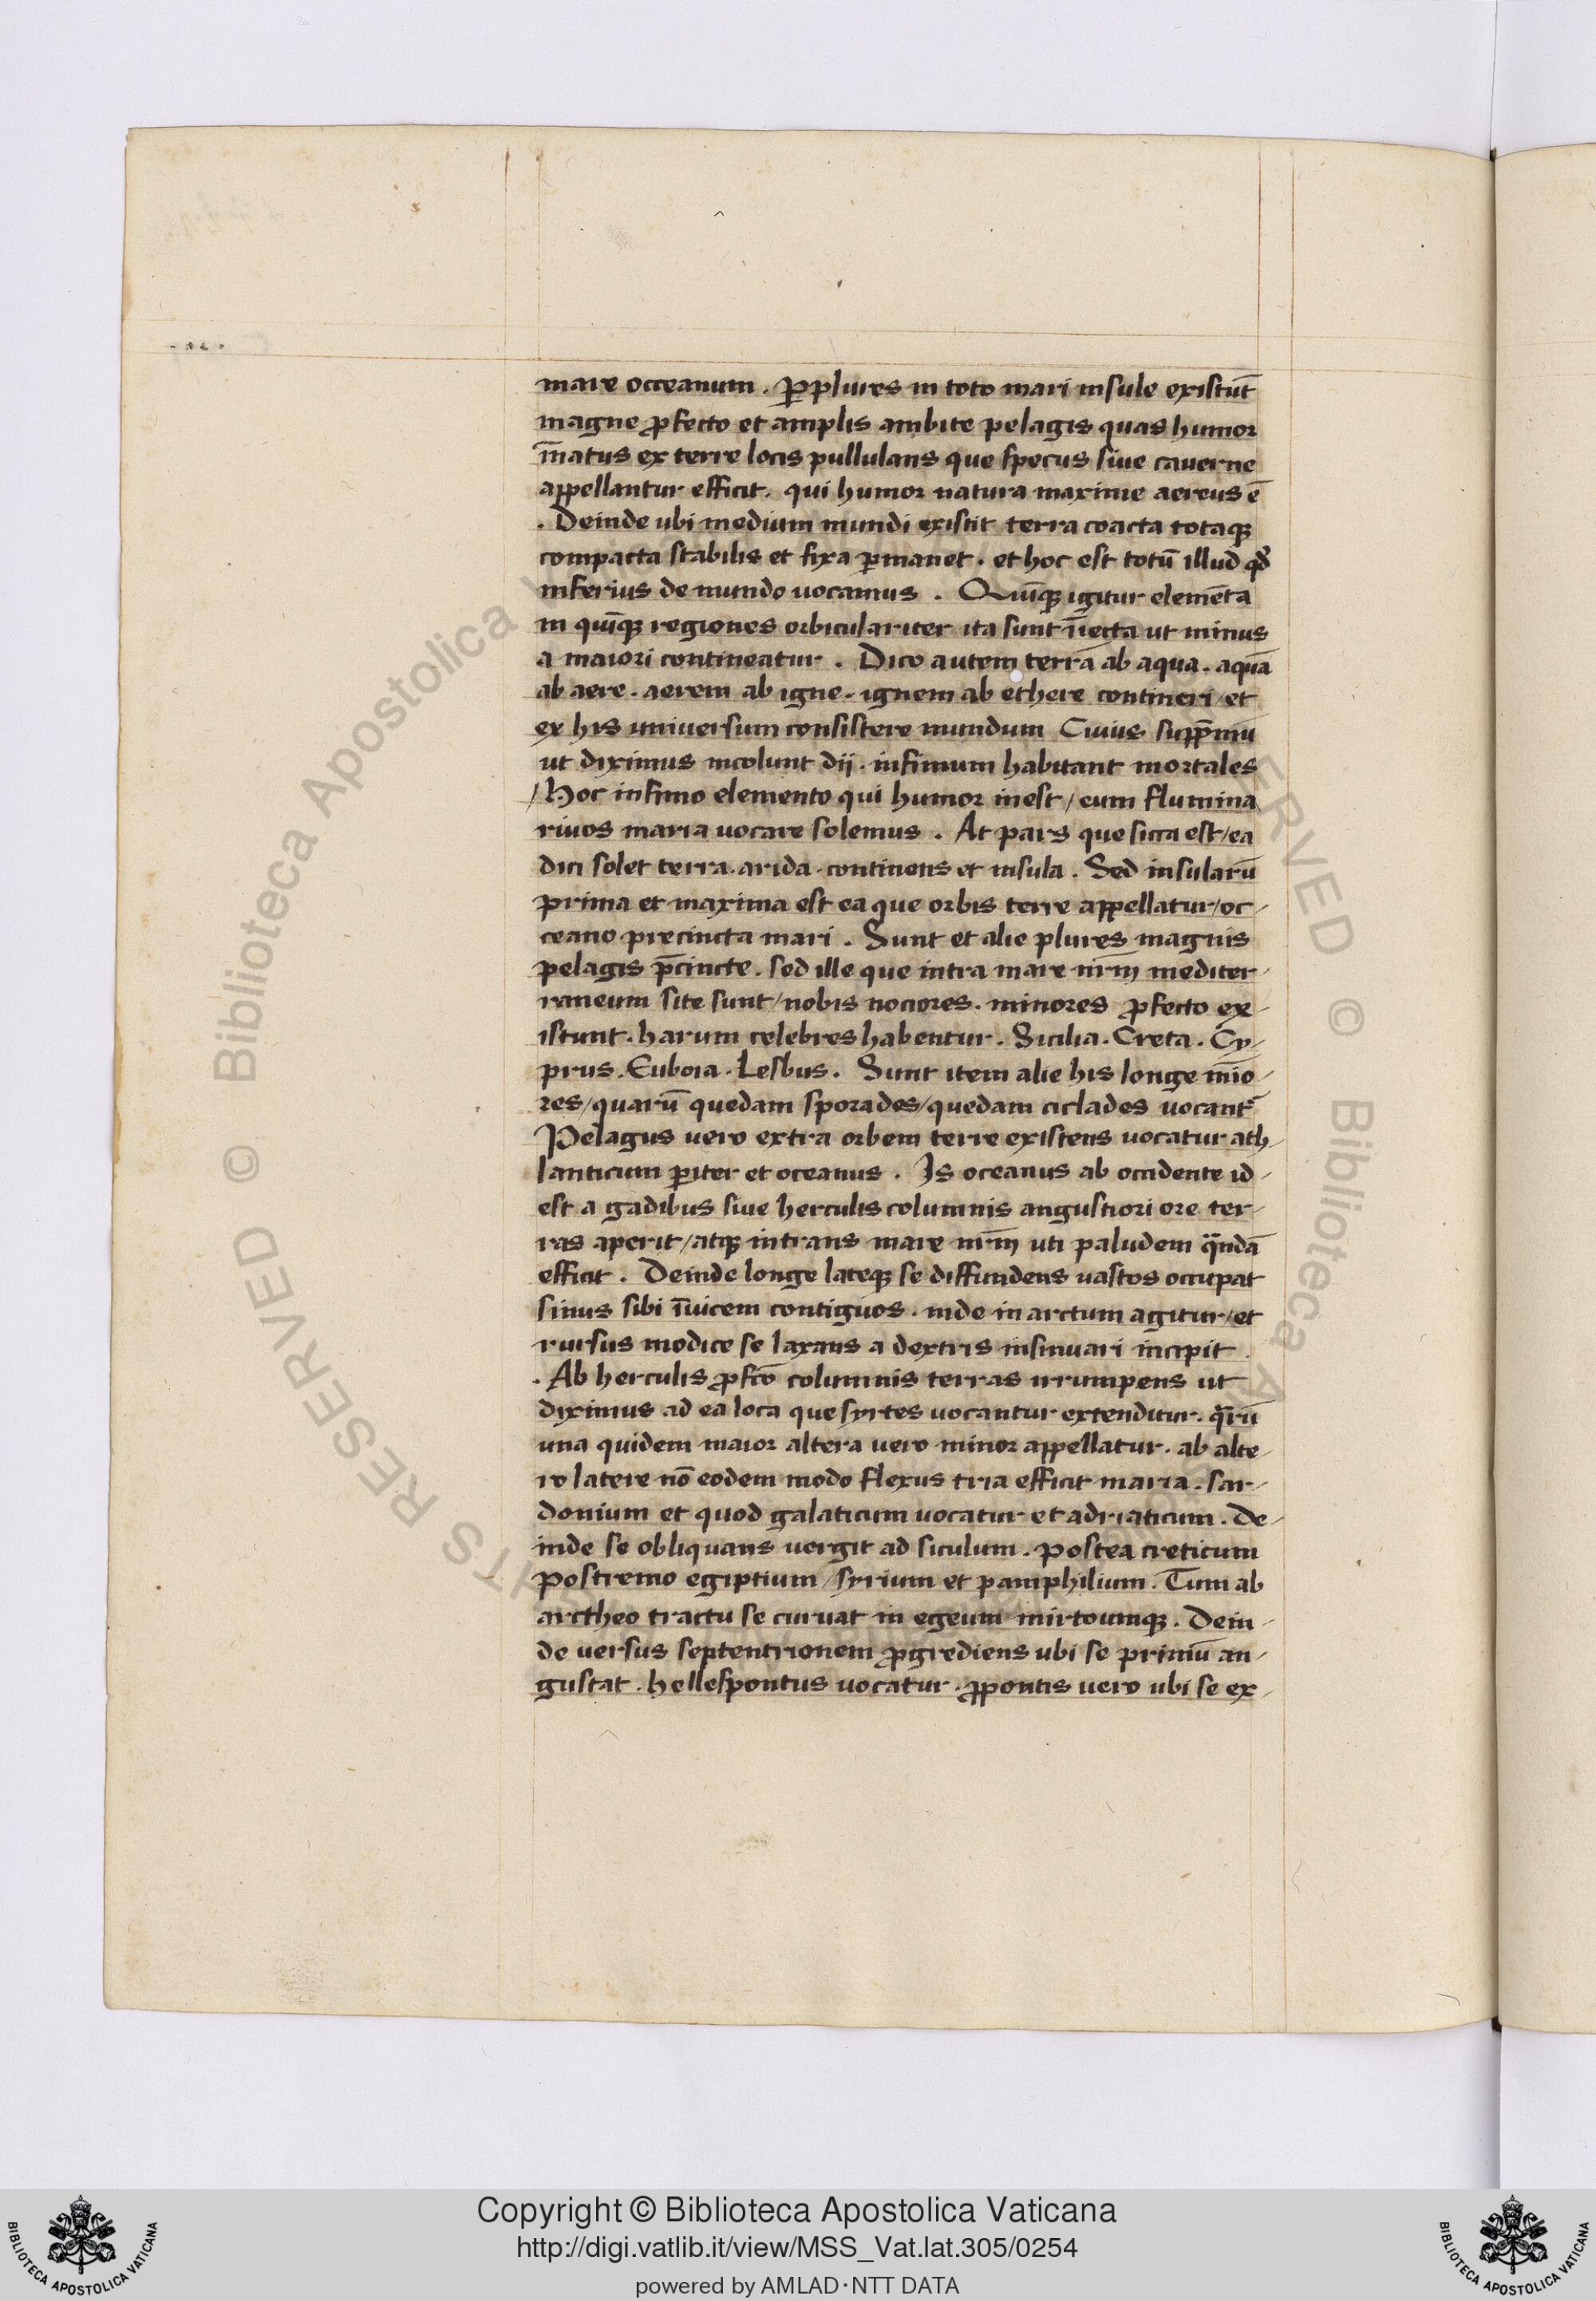 mare occeanum . P̱plures in toto mari insule existūt
magne ꝓfecto et amplis ambite pelagis quas humor
īnatus ex terre locis pullulans que specus siue cauerne
appellantur efficit . qui humor natura maxime aereus ē
. Deinde ubi medium mundi existit terra coacta totaqꝫ
compacta stabilis et fixa ꝑmanet . et hoc est totū illud qđ
inferius de mundo uocamus . Quīqꝫ igitur elemēta
in quīqꝫ regiones orbiculariter ita sunt īiecta ut minus
a maiori contineatur . Dico autem terrā ab aqua . aquā
ab aere . aerem ab igne . ignem ab ethere contineri / et
ex his uniuersum consistere mundum Cuius supp̄mū
ut diximus incolunt dii . infimum habitant mortales
/ Hoc infimo elemento qui humor inest / eum flumina
riuos maria uocare solemus . At pars que sicca est / ea
dici solet terra . arida . continens et insula . Sed insularū
prima et maxima est ea que orbis terre appellatur / oc-
ceano precincta mari . Sunt et alie plures magnis
pelagis p̄cincte . sed ille que intra mare nr̄m mediter-
raneum site sunt / nobis nociores . minores ꝓfecto ex-
istunt . harum celebres habentur . Sicilia . Creta . Cy-
prus . Euboia . Lesbus . Sunt item alie his longe mīo-
res / quarū quedam sporades / quedam ciclades uocantr̄
Pelagus uero extra orbem terre existens uocatur ath-
lanticum ꝑiter et oceanus . Is oceanus ab occidente id-
est a gadibus siue herculis columnis angustiori ore ter-
ras aperit / atqꝫ intrans mare nr̄m uti paludem q̄ndā
efficit . Deinde longe lateqꝫ se diffundens uastos occupat
sinus sibi īuicem contiguos . inde in arctum agitur / et
rursus modice se laxans a dextris insinuari incipit .
. Ab herculis ꝓfcō columnis terras irrumpens ut
diximus ad ea loca que syrtes uocantur extenditur . q̄rū
una quidem maior altera uero minor appellatur . ab alte-
ro latere nō eodem modo flexus tria efficit maria . sar-
donium et quod galaticum uocatur et adriaticum . De-
inde se obliquans uergit ad siculum . postea creticum
postremo egiptium / syrium et pamphilium . Tum ab
arctheo tractu se curuat in egeum mirtoumqꝫ . Dein-
de uersus septentrionem ꝓgrediens ubi se primū an-
gustat . hellespontus uocatur . ꝓpontis uero ubi se ex-
© Biblioteca Apostolica
Copyright © Biblioteca Apostolica Vaticana
http://digi.vatlib.it/view/MSS_Vat.lat.305/0254
powered by AMLAD·NTT DATA
BIBLIOTECA APOSTOLICA VATICANA
BIBLIOTECA APOSTOLICA VATICANA